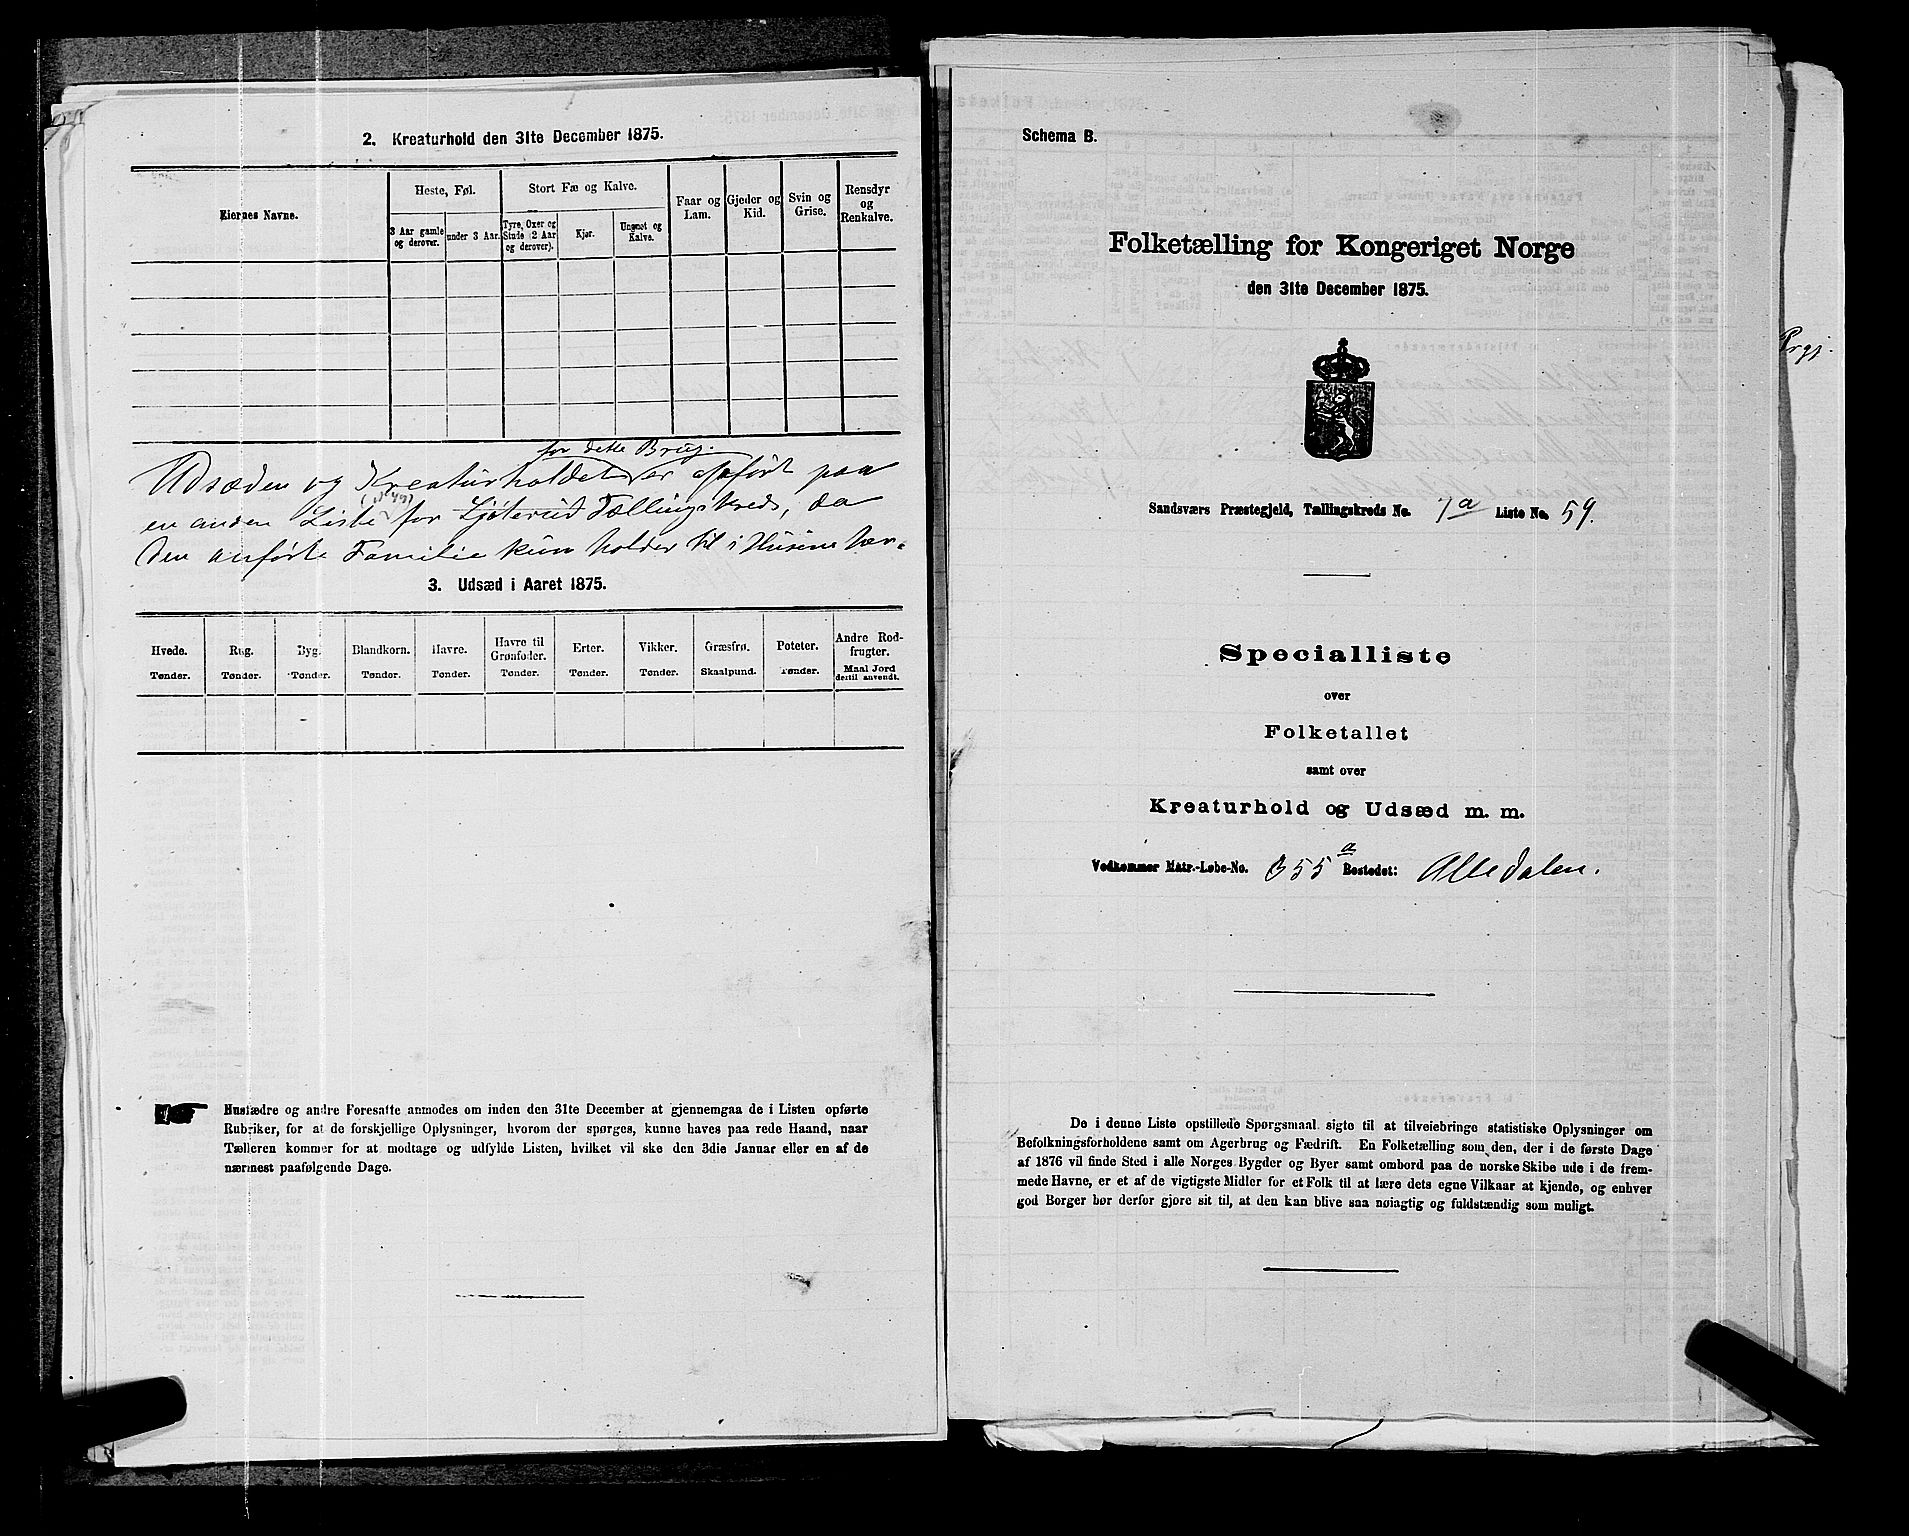 2. Kreaturhold den 31te December 1875.
Eiernes Navne.
Heste, Føl.
Stort Fæ og Kalve.
Faar og Lam.
Gjeder og Kid.
Svin og Grise.
Rensdyr og Renkalve.
3 Aar gamle og derover.
under 3 Aar.
Tyre, Oxer og Stude (2 Aar og derover).
Kjør.
Ungnøt og Kalve.
for dette Brug.
Udsæden og Kreaturholdet er opført paa
en anden Liste for Ljøterud Tællingskreds, da
den anførte Familie kun holder til i Husene her.
3. Udsæd i Aaret 1875.
Hvede. Rug. Byg. Blandkorn. Havre. Havre til Grønfoder. Erter. Vikker. Græsfrø. Poteter. Andre Rodfrugter.
Tønder. Tønder. Tønder. Tønder. Tønder. Tønder. Tønder. Tønder. Skaalpund. Tønder. Maal Jord dertil anvendt.
Husfædre og andre Foresatte anmodes om inden den 31te December at gjennemgaa de i Listen opførte
Rubriker, for at de forskjellige Oplysninger, hvorom der spørges, kunne haves paa rede Haand, naar
Tælleren kommer for at modtage og udfylde Listen, hvilket vil ske den 3die Januar eller en af de
nærmest paafølgende Dage.
Schema B.
Folketælling for Kongeriget Norge
den 31te December 1875.
Sandsværs Præstegjeld, Tællingskreds No. 7a Liste No. 59.
Specialliste
over
Folketallet
samt over
Kreaturhold og Udsæd m. m.
Vedkommer Matr.-Løbe-No. 355 a Bostedet: Alledalen.
De i denne Liste opstillede Spørgsmaal sigte til at tilveiebringe statistiske Oplysninger om
Befolkningsforholdene samt om Agerbrug og Fædrift. En Folketælling som den, der i de første Dage
af 1876 vil finde Sted i alle Norges Bygder og Byer samt ombord paa de norske Skibe ude i de frem-
mede Havne, er et af de vigtigste Midler for et Folk til at lære dets egne Vilkaar at kjende, og enhver
god Borger bør derfor gjøre sit til, at den kan blive saa nøiagtig og fuldstændig som muligt.